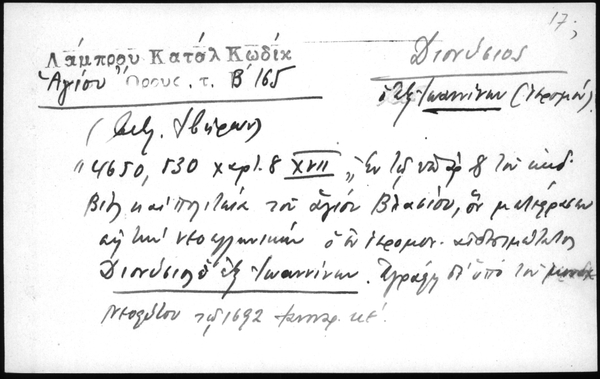 17
Λάμπρου Κατάλ Κωδίκ
Ἁγίου Ὄρους, τ. Β' 165
Διονύσιος
ὁ ἐξ Ἰωαννίνων (ἱερομόν.)
(Μον. Ἰβήρων)
"4650, 530 χαρτ. 8 XVII
Ἐν τῷ ὑπ' ἀρ 8 τοῦ κώδ.
Βίος καὶ πολιτεία τοῦ ἁγίου Βλασίου, ὃν μετέφρασεν
εἰς τὴν νεοελληνικὴν ὁ ἐν ἱερομον.
Διονύσιος ὁ ἐξ Ἰωαννίνων. Ἐγράφη δὲ ὑπὸ τοῦ
Νεοφύτου τῷ 1692 Ἰαννουαρ. κέ.